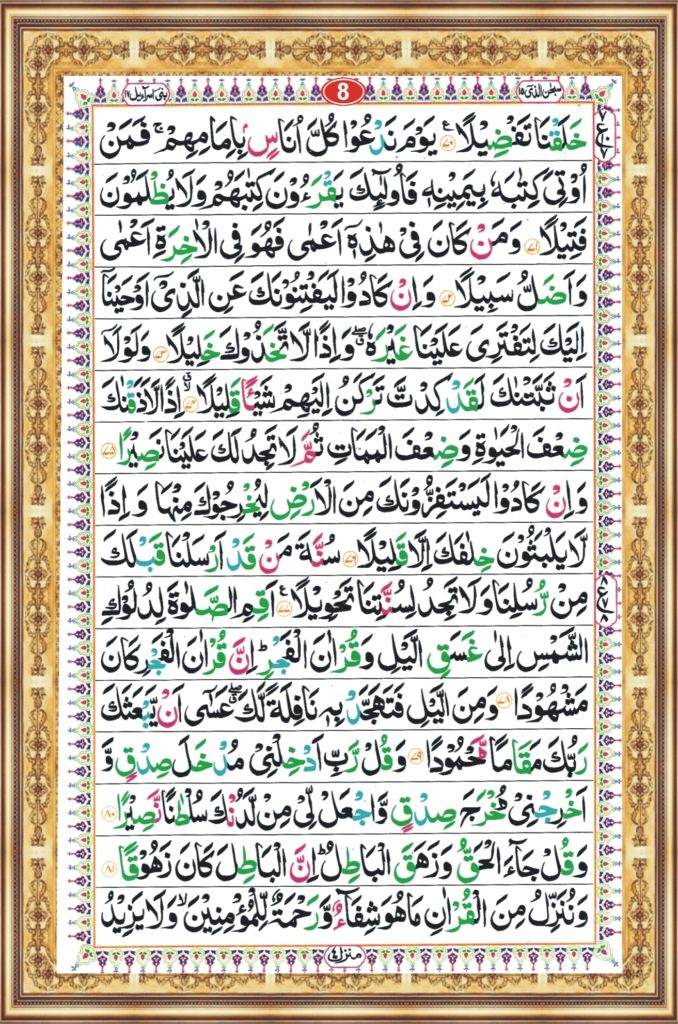 سبحٰن الذی ۱۵
8
بنی اسرآءیل ۱۷
خَلَقْنَا تَفْضِیْلًا ۷۰ یَوْمَ نَدْعُوْا كُلَّ اُنَاسٍۭ بِاِمَامِهِمْ ۚ فَمَنْ
اُوْتِیَ كِتٰبَهٗ بِیَمِیْنِهٖ فَاُولٰٓىِٕكَ یَقْرَءُوْنَ كِتٰبَهُمْ وَلَا یُظْلَمُوْنَ
فَتِیْلًا ۷۱ وَمَنْ كَانَ فِیْ هٰذِهٖۤ اَعْمٰی فَهُوَ فِی الْاٰخِرَةِ اَعْمٰی
وَاَضَلُّ سَبِیْلًا ۷۲ وَاِنْ كَادُوْا لَیَفْتِنُوْنَكَ عَنِ الَّذِیْۤ اَوْحَیْنَاۤ
اِلَیْكَ لِتَفْتَرِیَ عَلَیْنَا غَیْرَهٗ ۖۗ وَاِذًا لَّاتَّخَذُوْكَ خَلِیْلًا ۷۳ وَلَوْلَاۤ
اَنْ ثَبَّتْنٰكَ لَقَدْ كِدْتَّ تَرْكَنُ اِلَیْهِمْ شَیْـًٔا قَلِیْلًا ۷۴ ۙ اِذًا لَّاَذَقْنٰكَ
ضِعْفَ الْحَیٰوةِ وَضِعْفَ الْمَمَاتِ ثُمَّ لَا تَجِدُ لَكَ عَلَیْنَا نَصِیْرًا ۷۵
وَاِنْ كَادُوْا لَیَسْتَفِزُّوْنَكَ مِنَ الْاَرْضِ لِیُخْرِجُوْكَ مِنْهَا وَاِذًا
لَّا یَلْبَثُوْنَ خِلٰفَكَ اِلَّا قَلِیْلًا ۷۶ سُنَّةَ مَنْ قَدْ اَرْسَلْنَا قَبْلَكَ
مِنْ رُّسُلِنَا وَلَا تَجِدُ لِسُنَّتِنَا تَحْوِیْلًا ۷۷ اَقِمِ الصَّلٰوةَ لِدُلُوْكِ
الشَّمْسِ اِلٰی غَسَقِ الَّیْلِ وَقُرْاٰنَ الْفَجْرِ ؕ اِنَّ قُرْاٰنَ الْفَجْرِ كَانَ
مَشْهُوْدًا ۷۸ وَمِنَ الَّیْلِ فَتَهَجَّدْ بِهٖ نَافِلَةً لَّكَ ۖۗ عَسٰۤی اَنْ یَّبْعَثَكَ
رَبُّكَ مَقَامًا مَّحْمُوْدًا ۷۹ وَقُلْ رَّبِّ اَدْخِلْنِیْ مُدْخَلَ صِدْقٍ وَّ
اَخْرِجْنِیْ مُخْرَجَ صِدْقٍ وَّاجْعَلْ لِّیْ مِنْ لَّدُنْكَ سُلْطٰنًا نَّصِیْرًا ۸۰
وَقُلْ جَآءَ الْحَقُّ وَزَهَقَ الْبَاطِلُ ؕ اِنَّ الْبَاطِلَ كَانَ زَهُوْقًا ۸۱
وَنُنَزِّلُ مِنَ الْقُرْاٰنِ مَا هُوَ شِفَآءٌ وَّرَحْمَةٌ لِّلْمُؤْمِنِیْنَ ۙ وَلَا یَزِیْدُ
منزل ۴